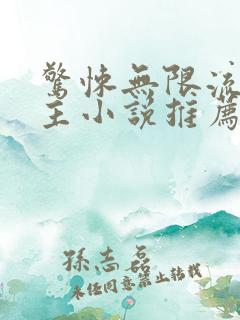 驚悚無限流
主小說推薦
孫志磊
未經同意禁止轉載